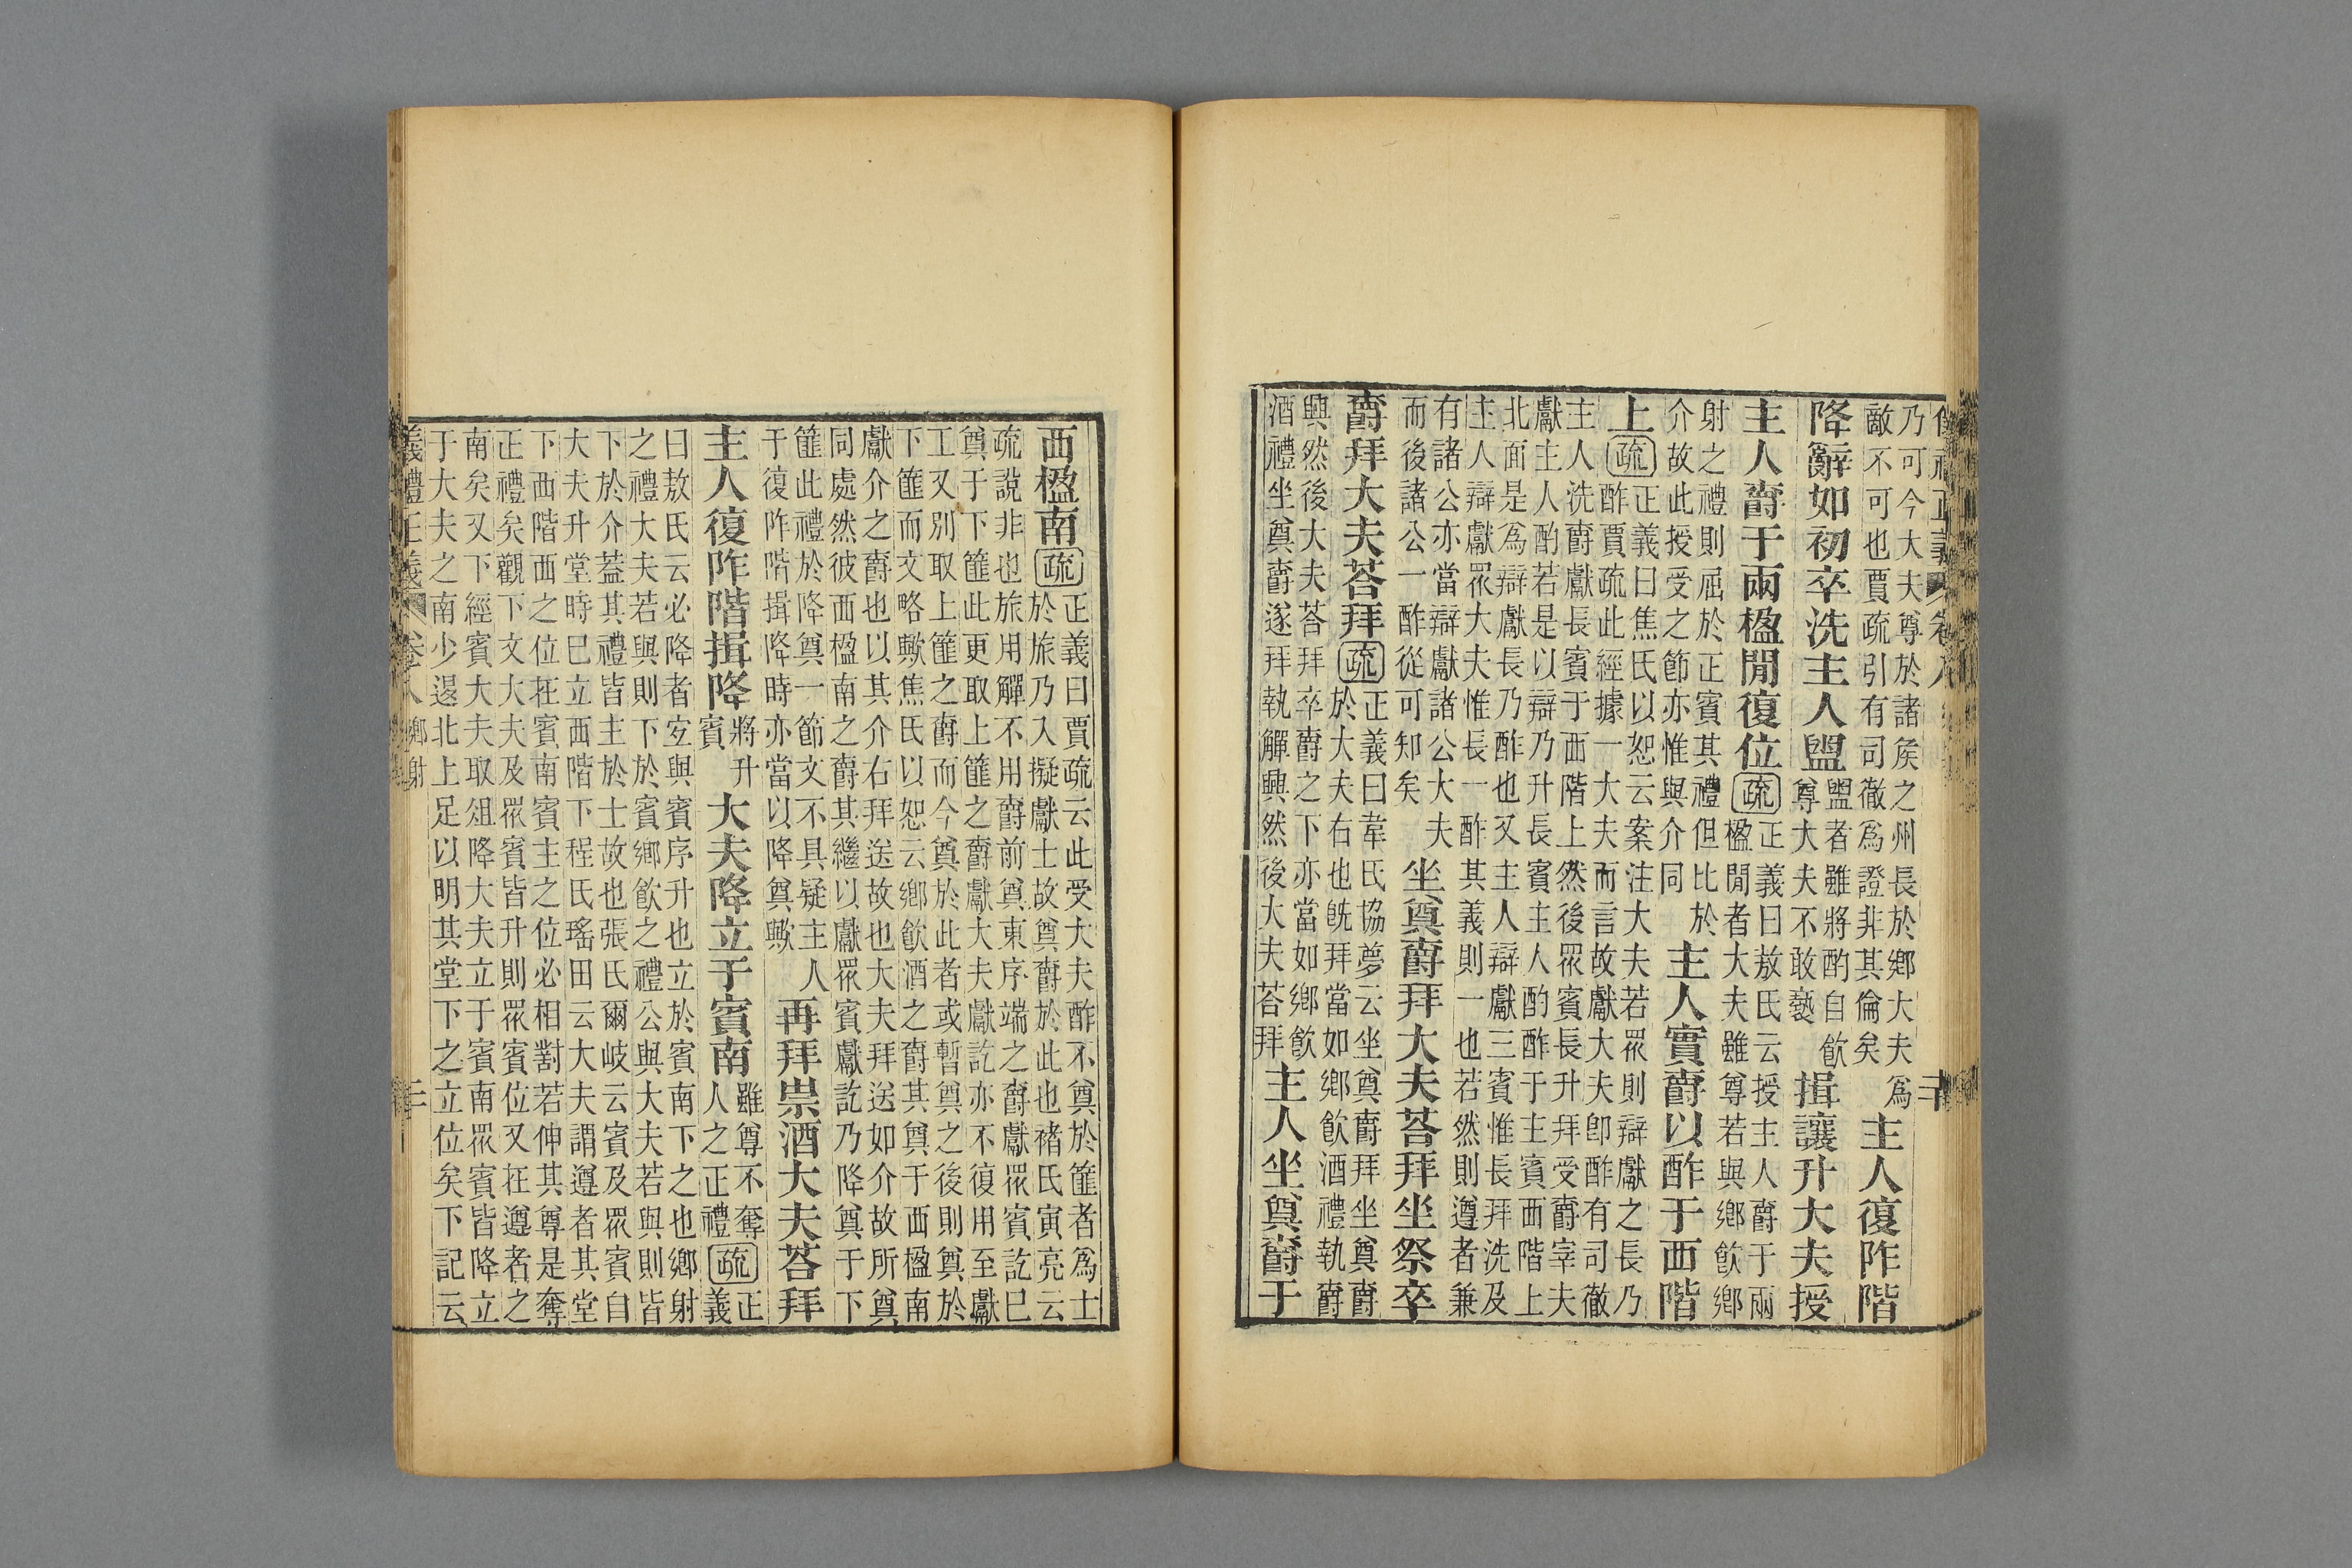 乃可今大夫尊於諸矦之州長於鄉大夫爲
敵不可也賈疏引有司徹爲證非其倫矣
主人復阼階
降辭如初卒洗主人盥
盥者雖將酌自飲
尊大夫不敢褻
揖讓升大夫授
主人爵于兩楹閒復位
疏
正義曰敖氏云授主人爵于兩
楹閒者大夫雖尊若與鄉飲鄉
射之禮則屈於正賓其禮但比於
介故此授受之節亦惟與介同
主人實爵以酢于西階
上
疏
正義曰焦氏以恕云案注大夫若眾則辯獻之長乃
酢賈疏此經據一大夫而言故獻大夫卽酢有司徹
主人洗爵獻長賓于西階上然後眾賓長升拜受爵宰夫
獻主人酌若是以辯乃升長賓主人酌酢于主賓西階上
北面是爲辯獻長乃酢也又主人辯獻三賓惟長拜洗及
主人辯獻眾大夫惟長一酢其義則一也若然則遵者兼
有諸公亦當辯獻諸公大夫
而後諸公一酢從可知矣
坐奠爵拜大夫荅拜坐祭卒
爵拜大夫荅拜
疏
正義曰韋氏協夢云坐奠爵拜坐奠爵
於大夫右也旣拜當如鄉飲酒禮執爵
興然後大夫荅拜卒爵之下亦當如鄉飲
酒禮坐奠爵遂拜執觶興然後大夫荅拜
主人坐奠爵于
西楹南
疏
正義曰賈疏云此受大夫酢不奠於篚者爲士
於旅乃入擬獻士故奠爵於此也褚氏寅亮云
疏說非也旅用觶不用爵前奠東序端之爵獻眾賓訖已
奠于下篚此更取上篚之爵獻大夫獻訖亦不復用至獻
工又別取上篚之爵而今奠於此者或暫奠之後則奠於
下篚而文略歟焦氏以恕云鄉飲酒之爵其奠于西楹南
獻介之爵也以其介右拜送故也大夫拜送如介故所奠
同處然彼西楹南之爵其繼以獻眾賓獻訖乃降奠于下
篚此禮於降奠一節文不具疑主人
于復阼階揖降時亦當以降奠歟
再拜崇酒大夫荅拜
主人復阼階揖降
將升
賓
大夫降立于賓南
雖尊不奪
人之正禮
疏
正
義
曰敖氏云必降者宐與賓序升也立於賓南下之也鄉射
之禮大夫若與則下於賓鄉飲之禮公與大夫若與則皆
下於介蓋其禮皆主於士故也張氏爾岐云賓及眾賓自
大夫升堂時已立西階下程氏瑤田云大夫謂遵者其堂
下西階西之位在賓南賓主之位必相對若伸其尊是奪
正禮矣觀下文大夫及眾賓皆升則眾賓位又在遵者之
南矣又下經賓大夫取俎降大夫立于賓南眾賓皆降立
于大夫之南少退北上足以明其堂下之立位矣下記云